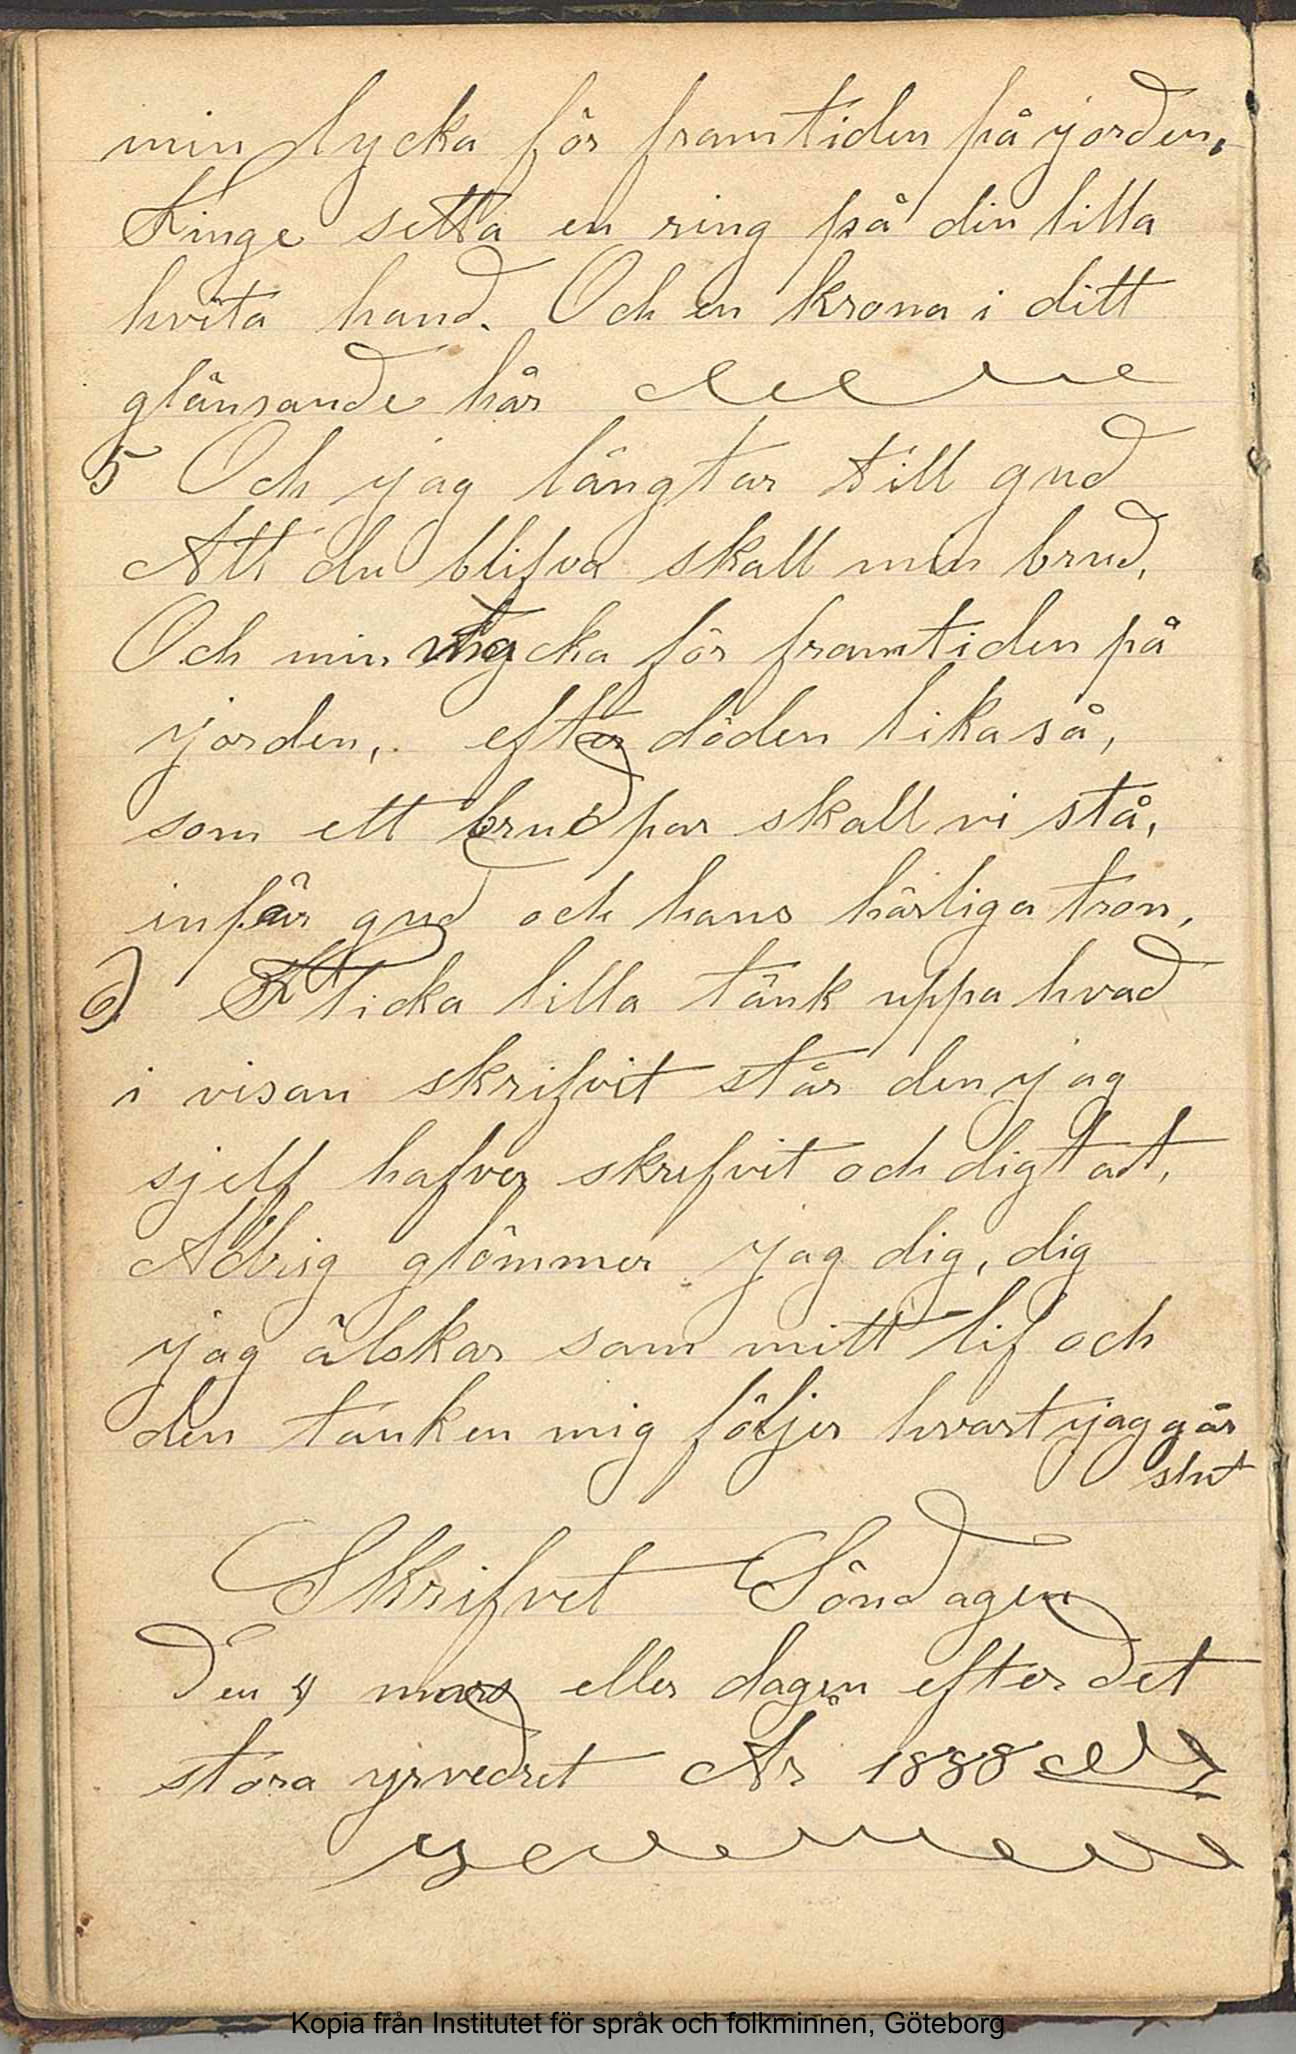 min lycka för framtiden på jorden,
Finge setta en ring på din lilla
hvita hand. Och en krona i ditt
glänsande hår
5 Och jag längtar till gud
Att du blifva skall min brud,
Och min lycka för framtiden på
jorden, efter döden lika så,
som ett brudpar skall vi stå,
inför gud och hans härliga tron,
6) Flicka lilla tänk uppa hvad
i visan skrifvit står den jag
sjelf hafver skrefvit och digtat,
Aldrig glömmer jag dig, dig
jag älskar som mitt lif och
den tanken mig följer hvart jag går
slut
Skrifvet Söndagen
Den 4 mars eller dagen efter det
stora yrvedret År 1888
Kopia från Institutet för språk och folkminnen, Göteborg